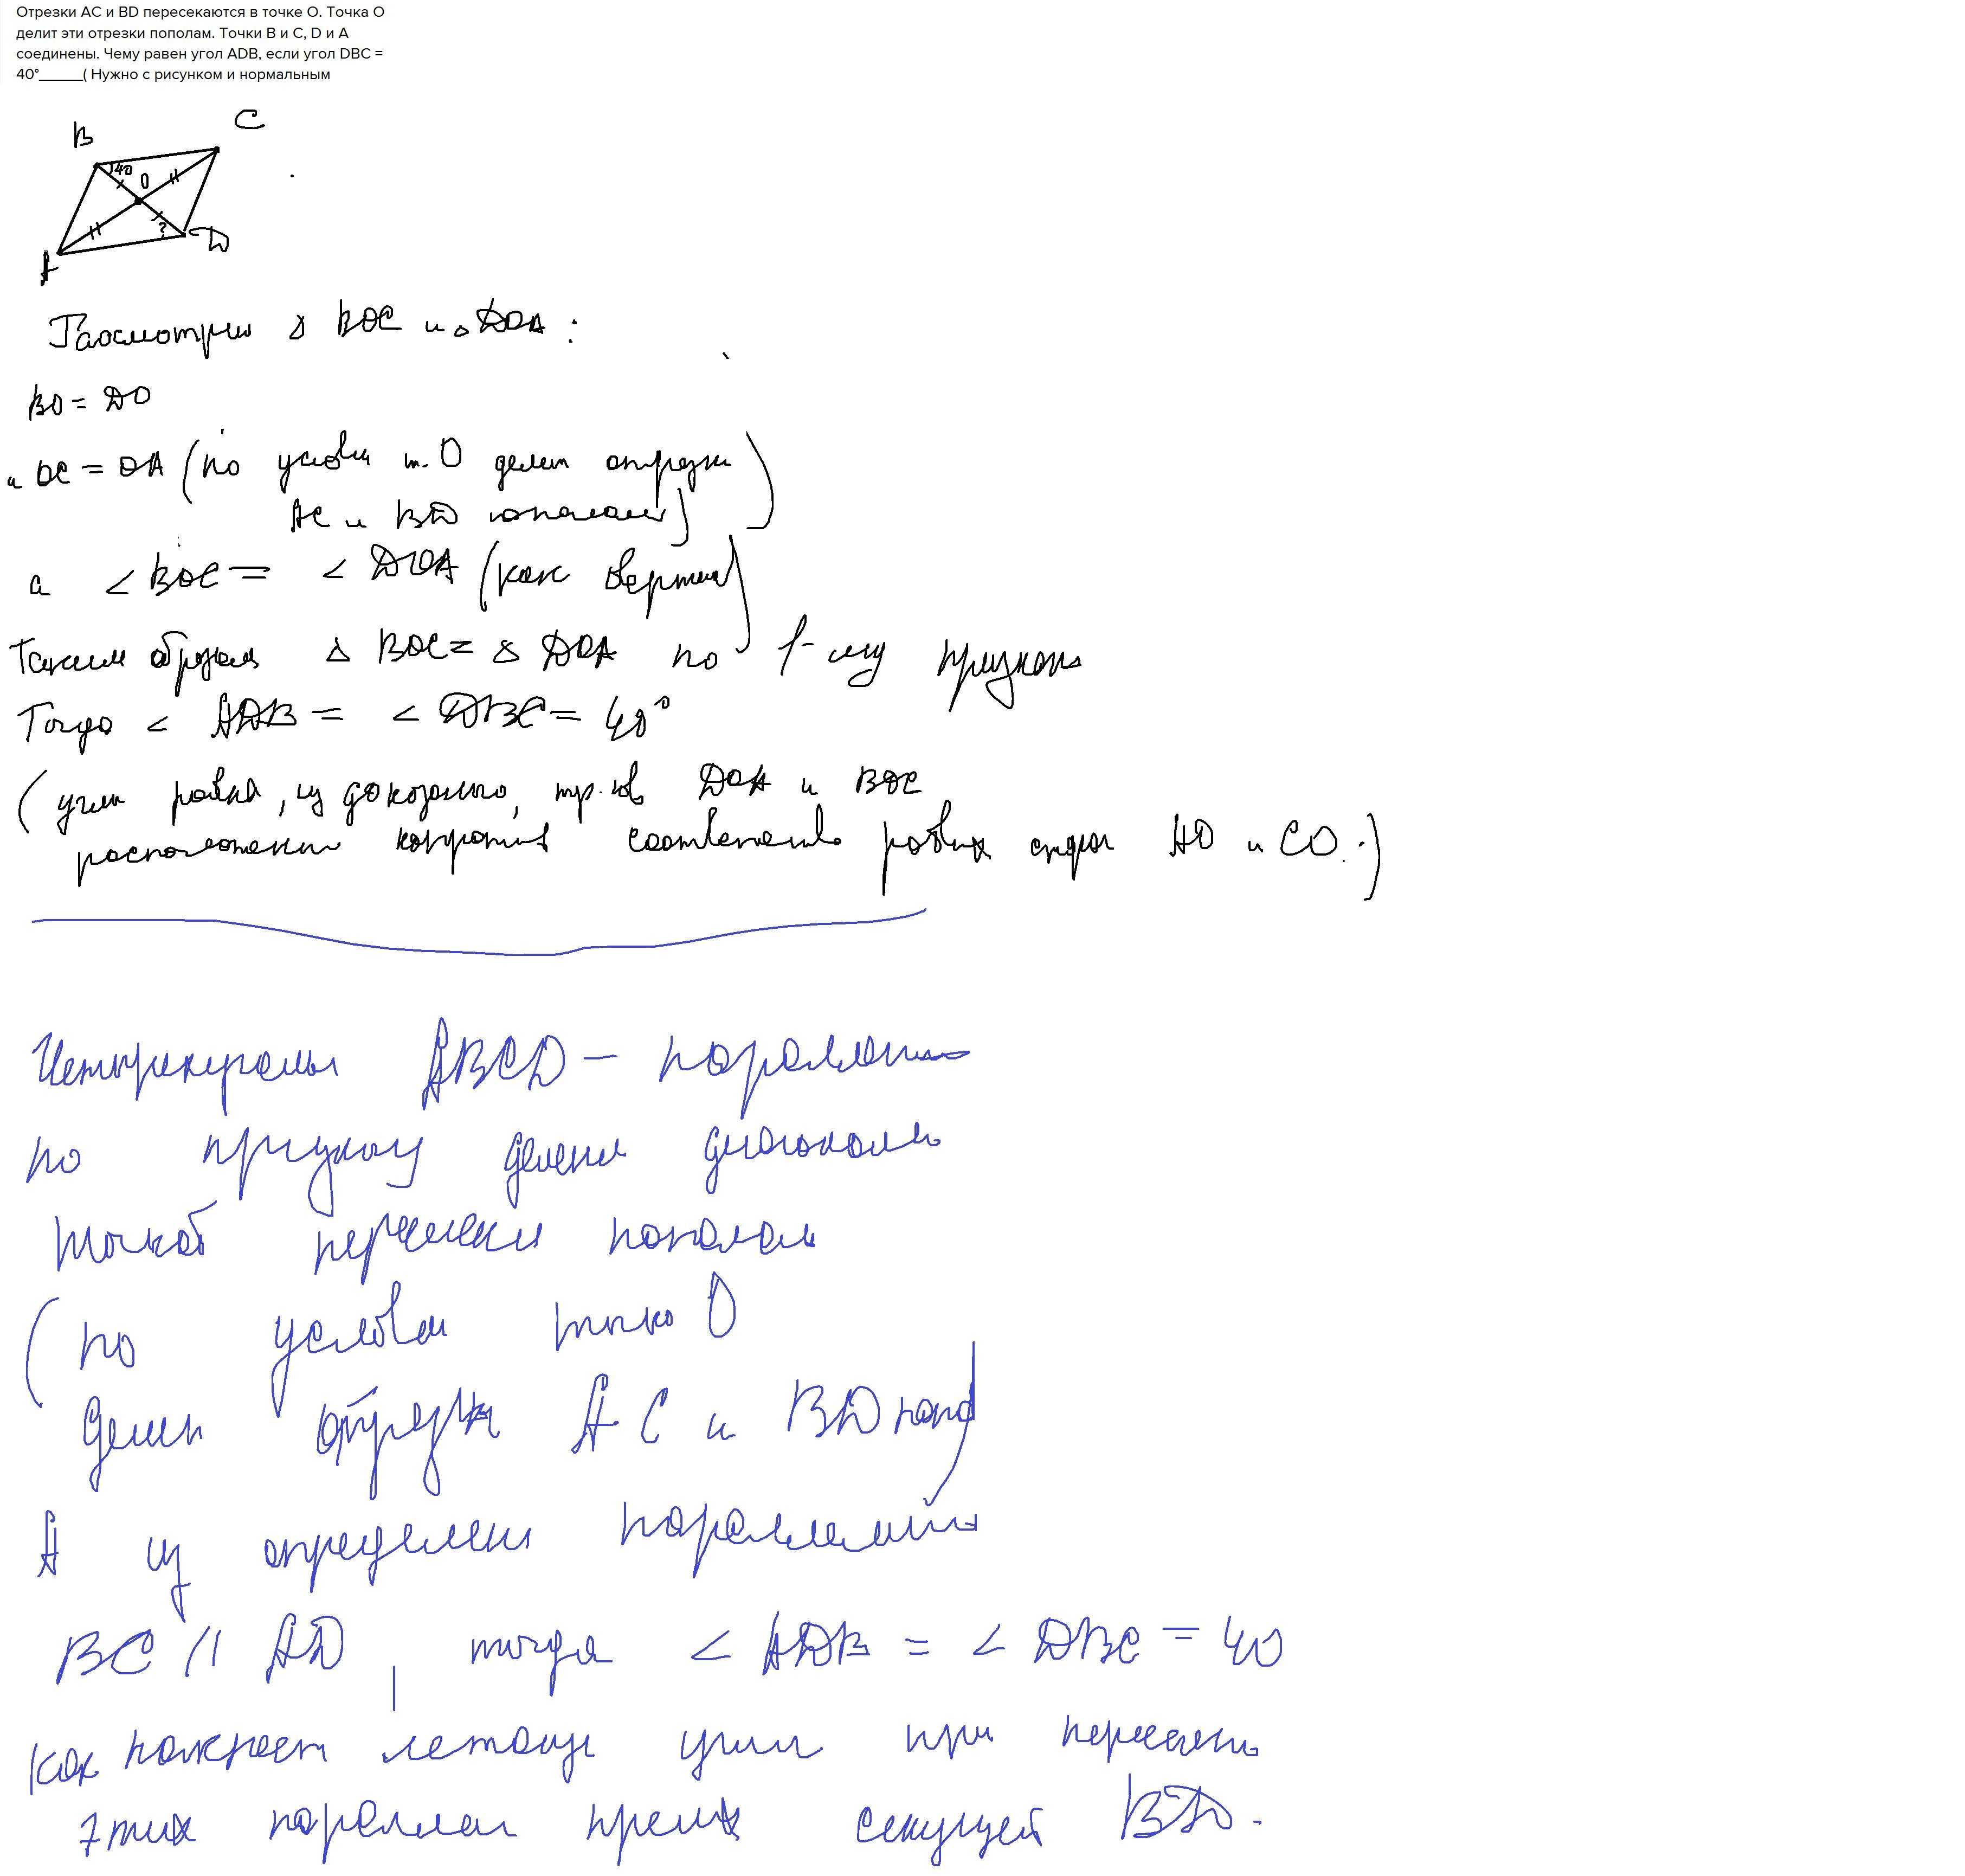 Отрезки AC и BD пересекаются в точке O. Точка O
делит эти отрезки пополам. Точки B и C, D и A
соединены. Чему равен угол ADB, если угол DBC =
40°_____( Нужно с рисунком и нормальным
B
C
40
O
?
A
D
Δ BOC и Δ DOA :
BO = DO
и OC = OA (по услови т. O делит отрезки
AC и BD пополам)
а < BOC = < DOA (как вертик)
Таким образом Δ BOC = Δ DOA по 1-му признак
Тогда < ADB = < DBC = 40°
(углы равны, из доказано, тр-ков DOA и BOC
расположени напротив соответственно равных сторон AO и CO.)
ABCD – параллел
по признаку делени диагонал
точкой пересечен пополам
(по услови точка O
делит отрезки AC и BD попол)
А из определен параллел
BC || AD , тогда < ADB = < DBC = 40
как накрест лежащи углы при пересечен
этих параллел прямых секущей BD.